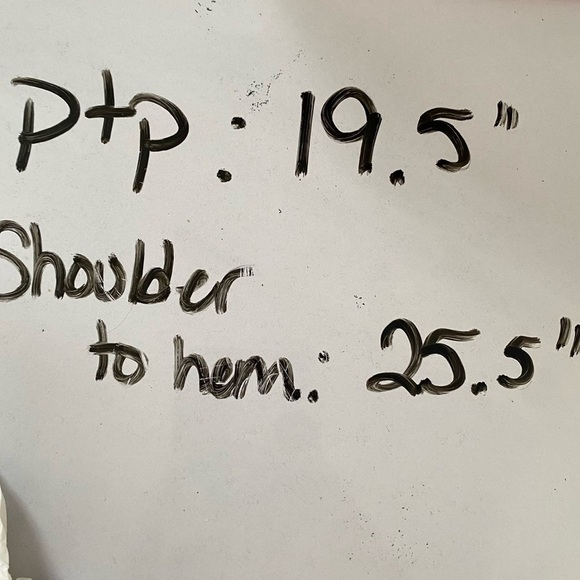 ptp: 19.5"
Shoulder
to hem: 25.5"